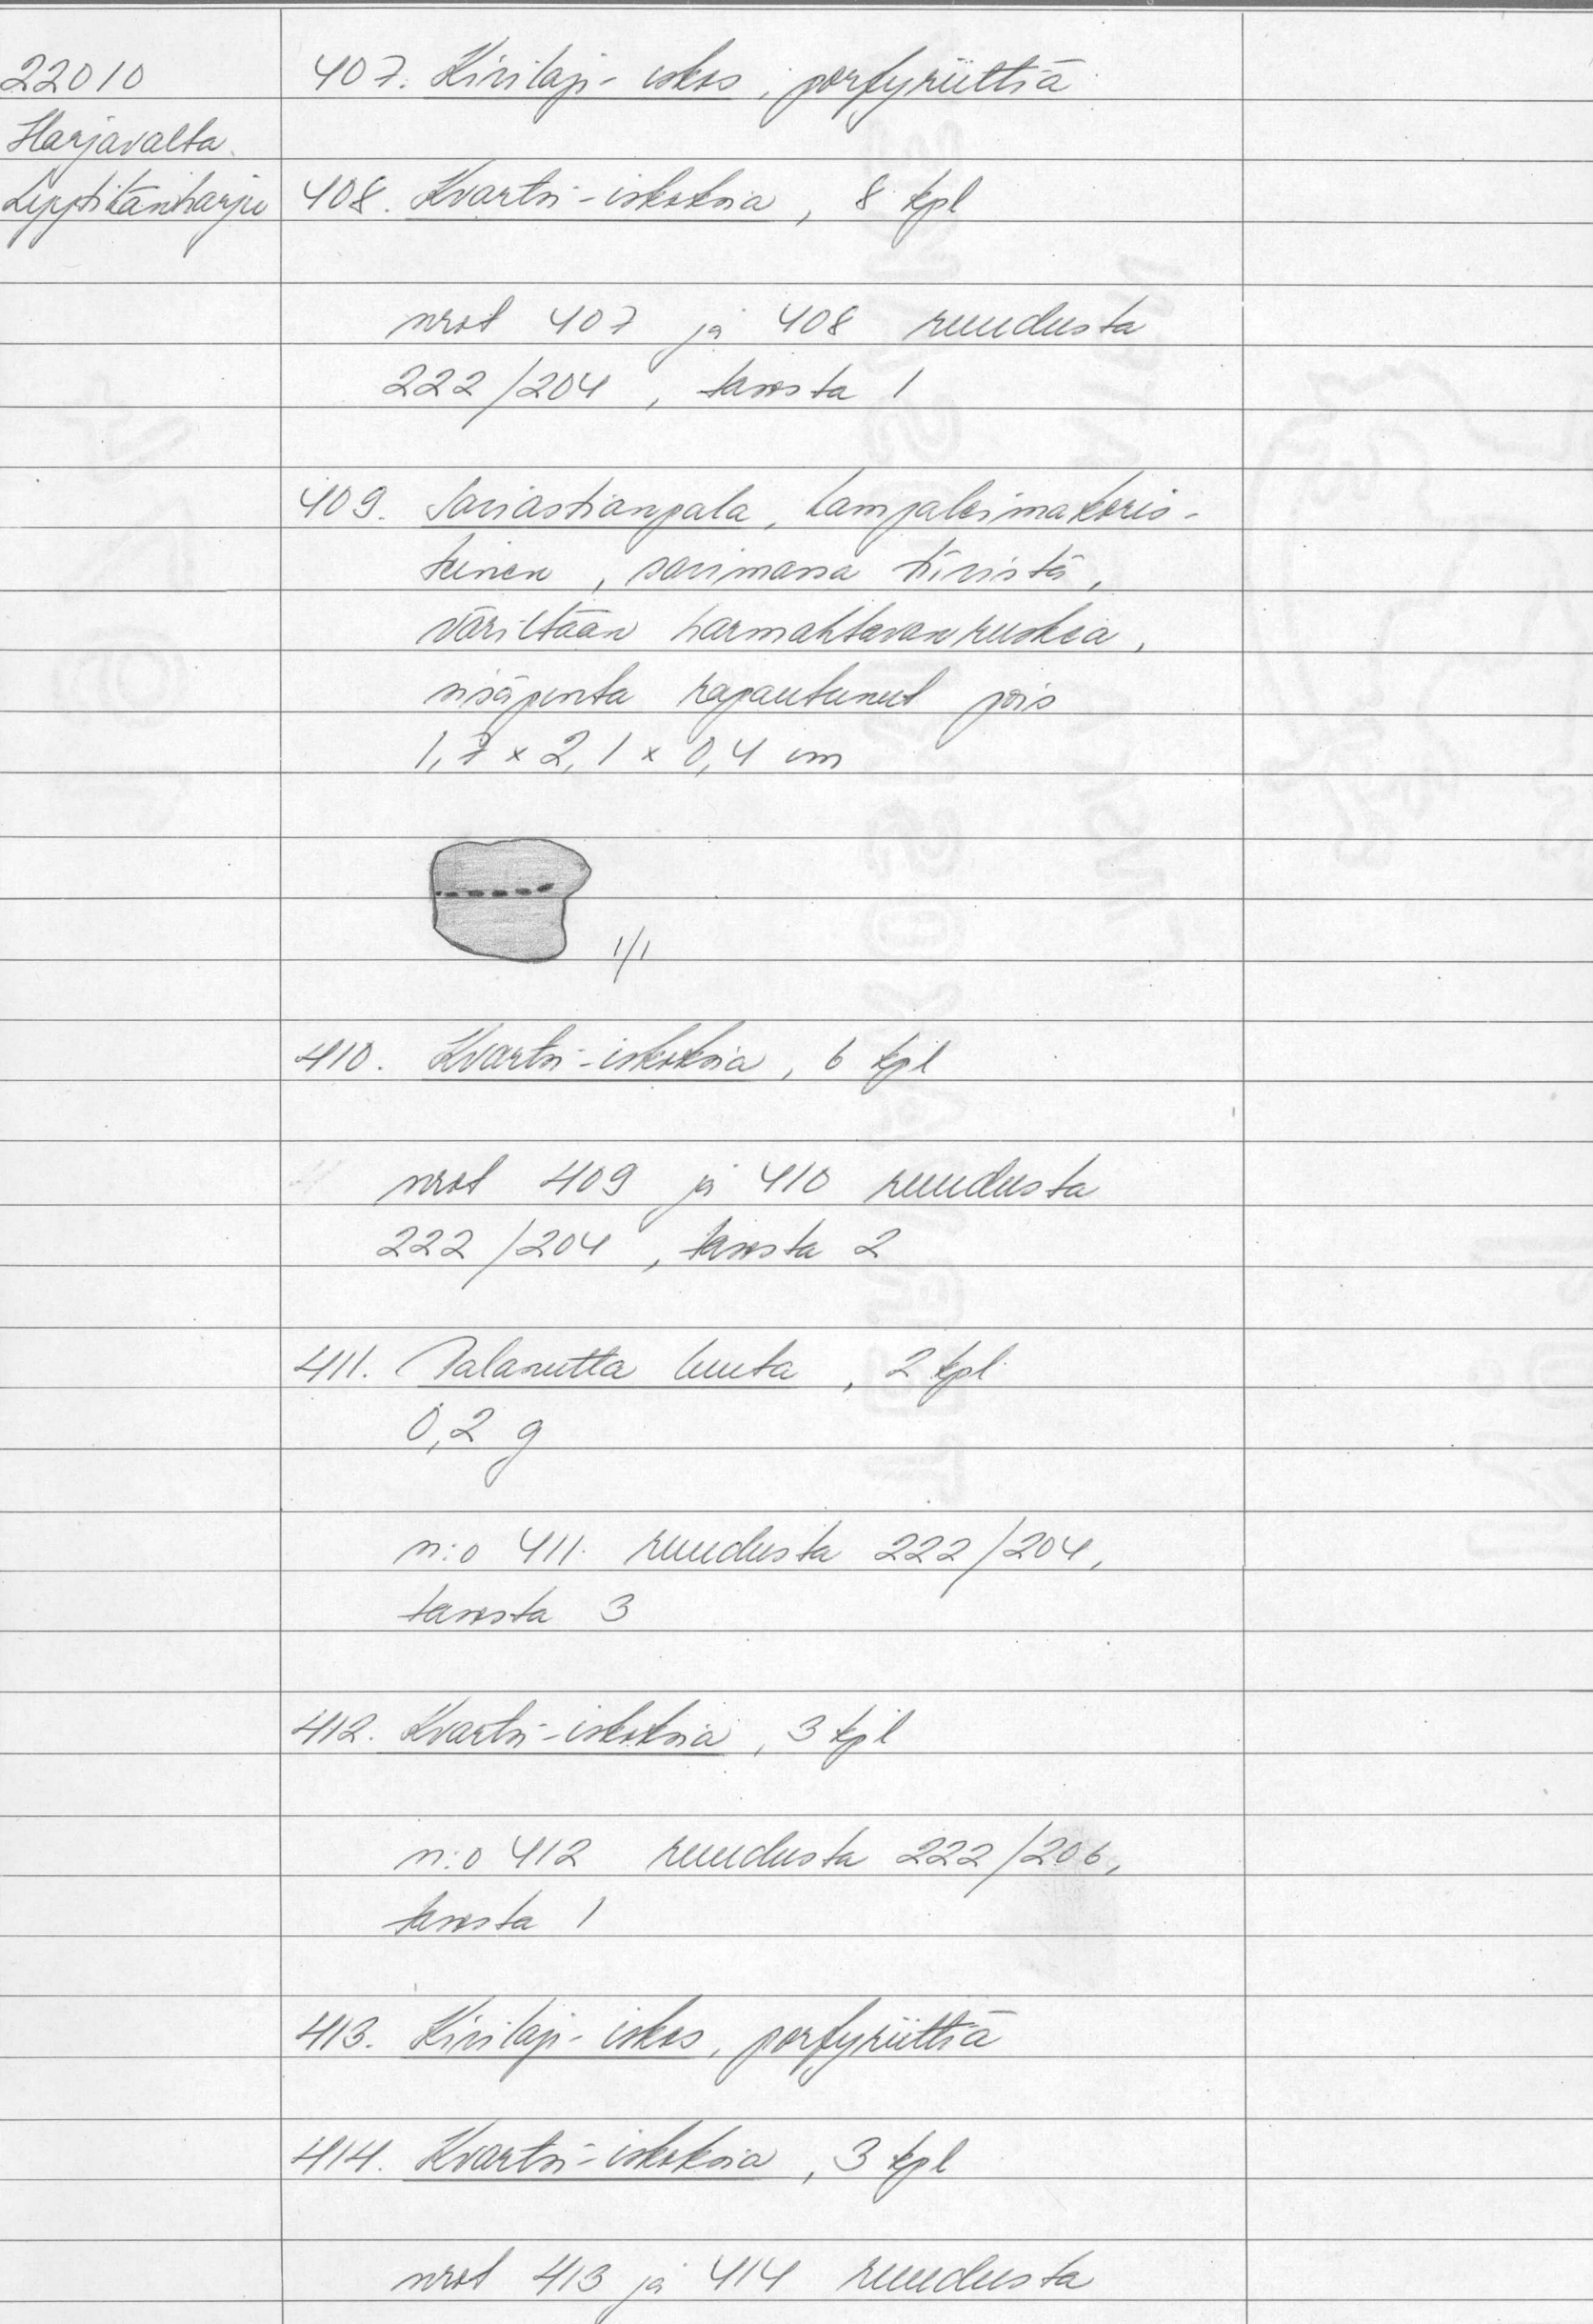 22010
Harjavalta
Lyytikänharju
407. Kivilaji-iskos, porfyriittiä
408. Kvartsi-iskoksia, 8 kpl
nrot 407 ja 408 ruudusta
222/204, tasosta 1
409. Saviastianpala, kampaleimakoris-
teinen, savimassa tiivistä,
väriltään harmahtavanruskea,
sisäpinta rapautunut pois
1,7 x 2,1 x 0,4 cm
1/1
410. Kvartsi-iskoksia, 6 kpl
nrot 409 ja 410 ruudusta
222/204, tasosta 2
411. Palanutta luuta, 2 kpl
0,2 g
n:o 411 ruudusta 222/204,
tasosta 3
412. Kvartsi-iskoksia, 3 kpl
n:o 412 ruudusta 222/206,
tasosta 1
413. Kivilaji-iskos, porfyriittiä
414. Kvartsi-iskoksia, 3 kpl
nrot 413 ja 414 ruudusta